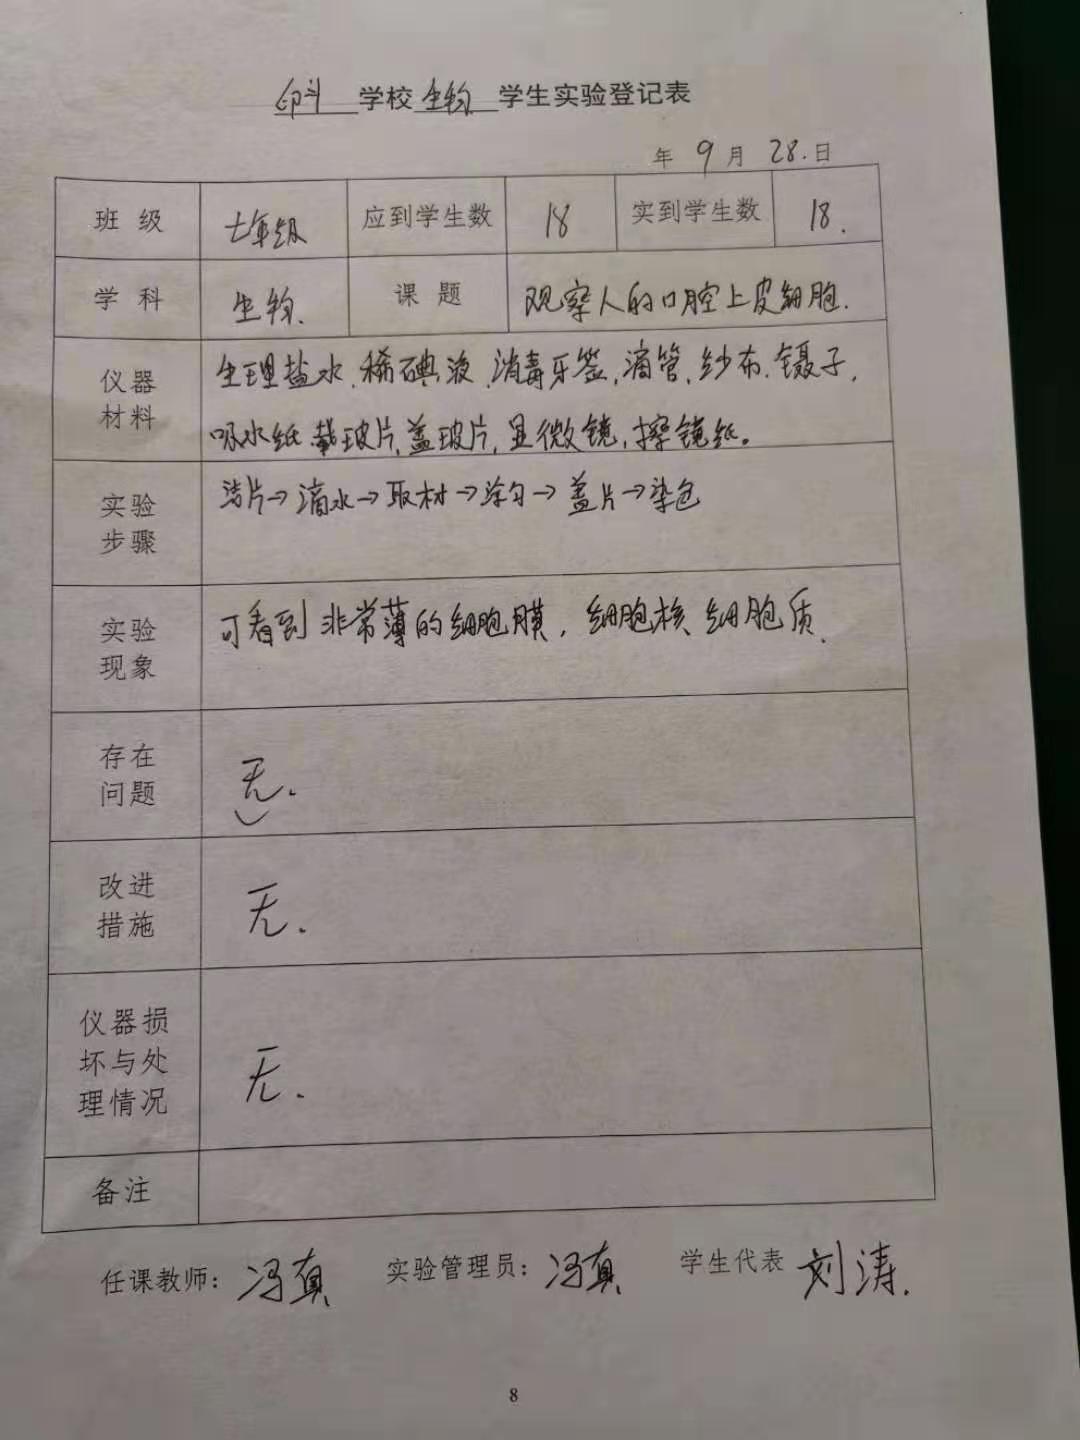 印斗 学校 生物 学生实验登记表
年 9 月 28.日
班 级 七年级 应到学生数 18 实到学生数 18.
学 科 生物. 课 题 观察人的口腔上皮细胞.
仪器
材料
生理盐水.稀碘液.消毒牙签,滴管,纱布.镊子,
吸水纸.载玻片,盖玻片,显微镜,擦镜纸。
实验
步骤
洁片→滴水→取材→涂匀→盖片→染色
实验
现象
可看到非常薄的细胞膜,细胞核.细胞质.
存在
问题
无.
改进
措施
无.
仪器损
坏与处
理情况
无.
备注
任课教师: 冯真 实验管理员: 冯真 学生代表 刘涛.
8